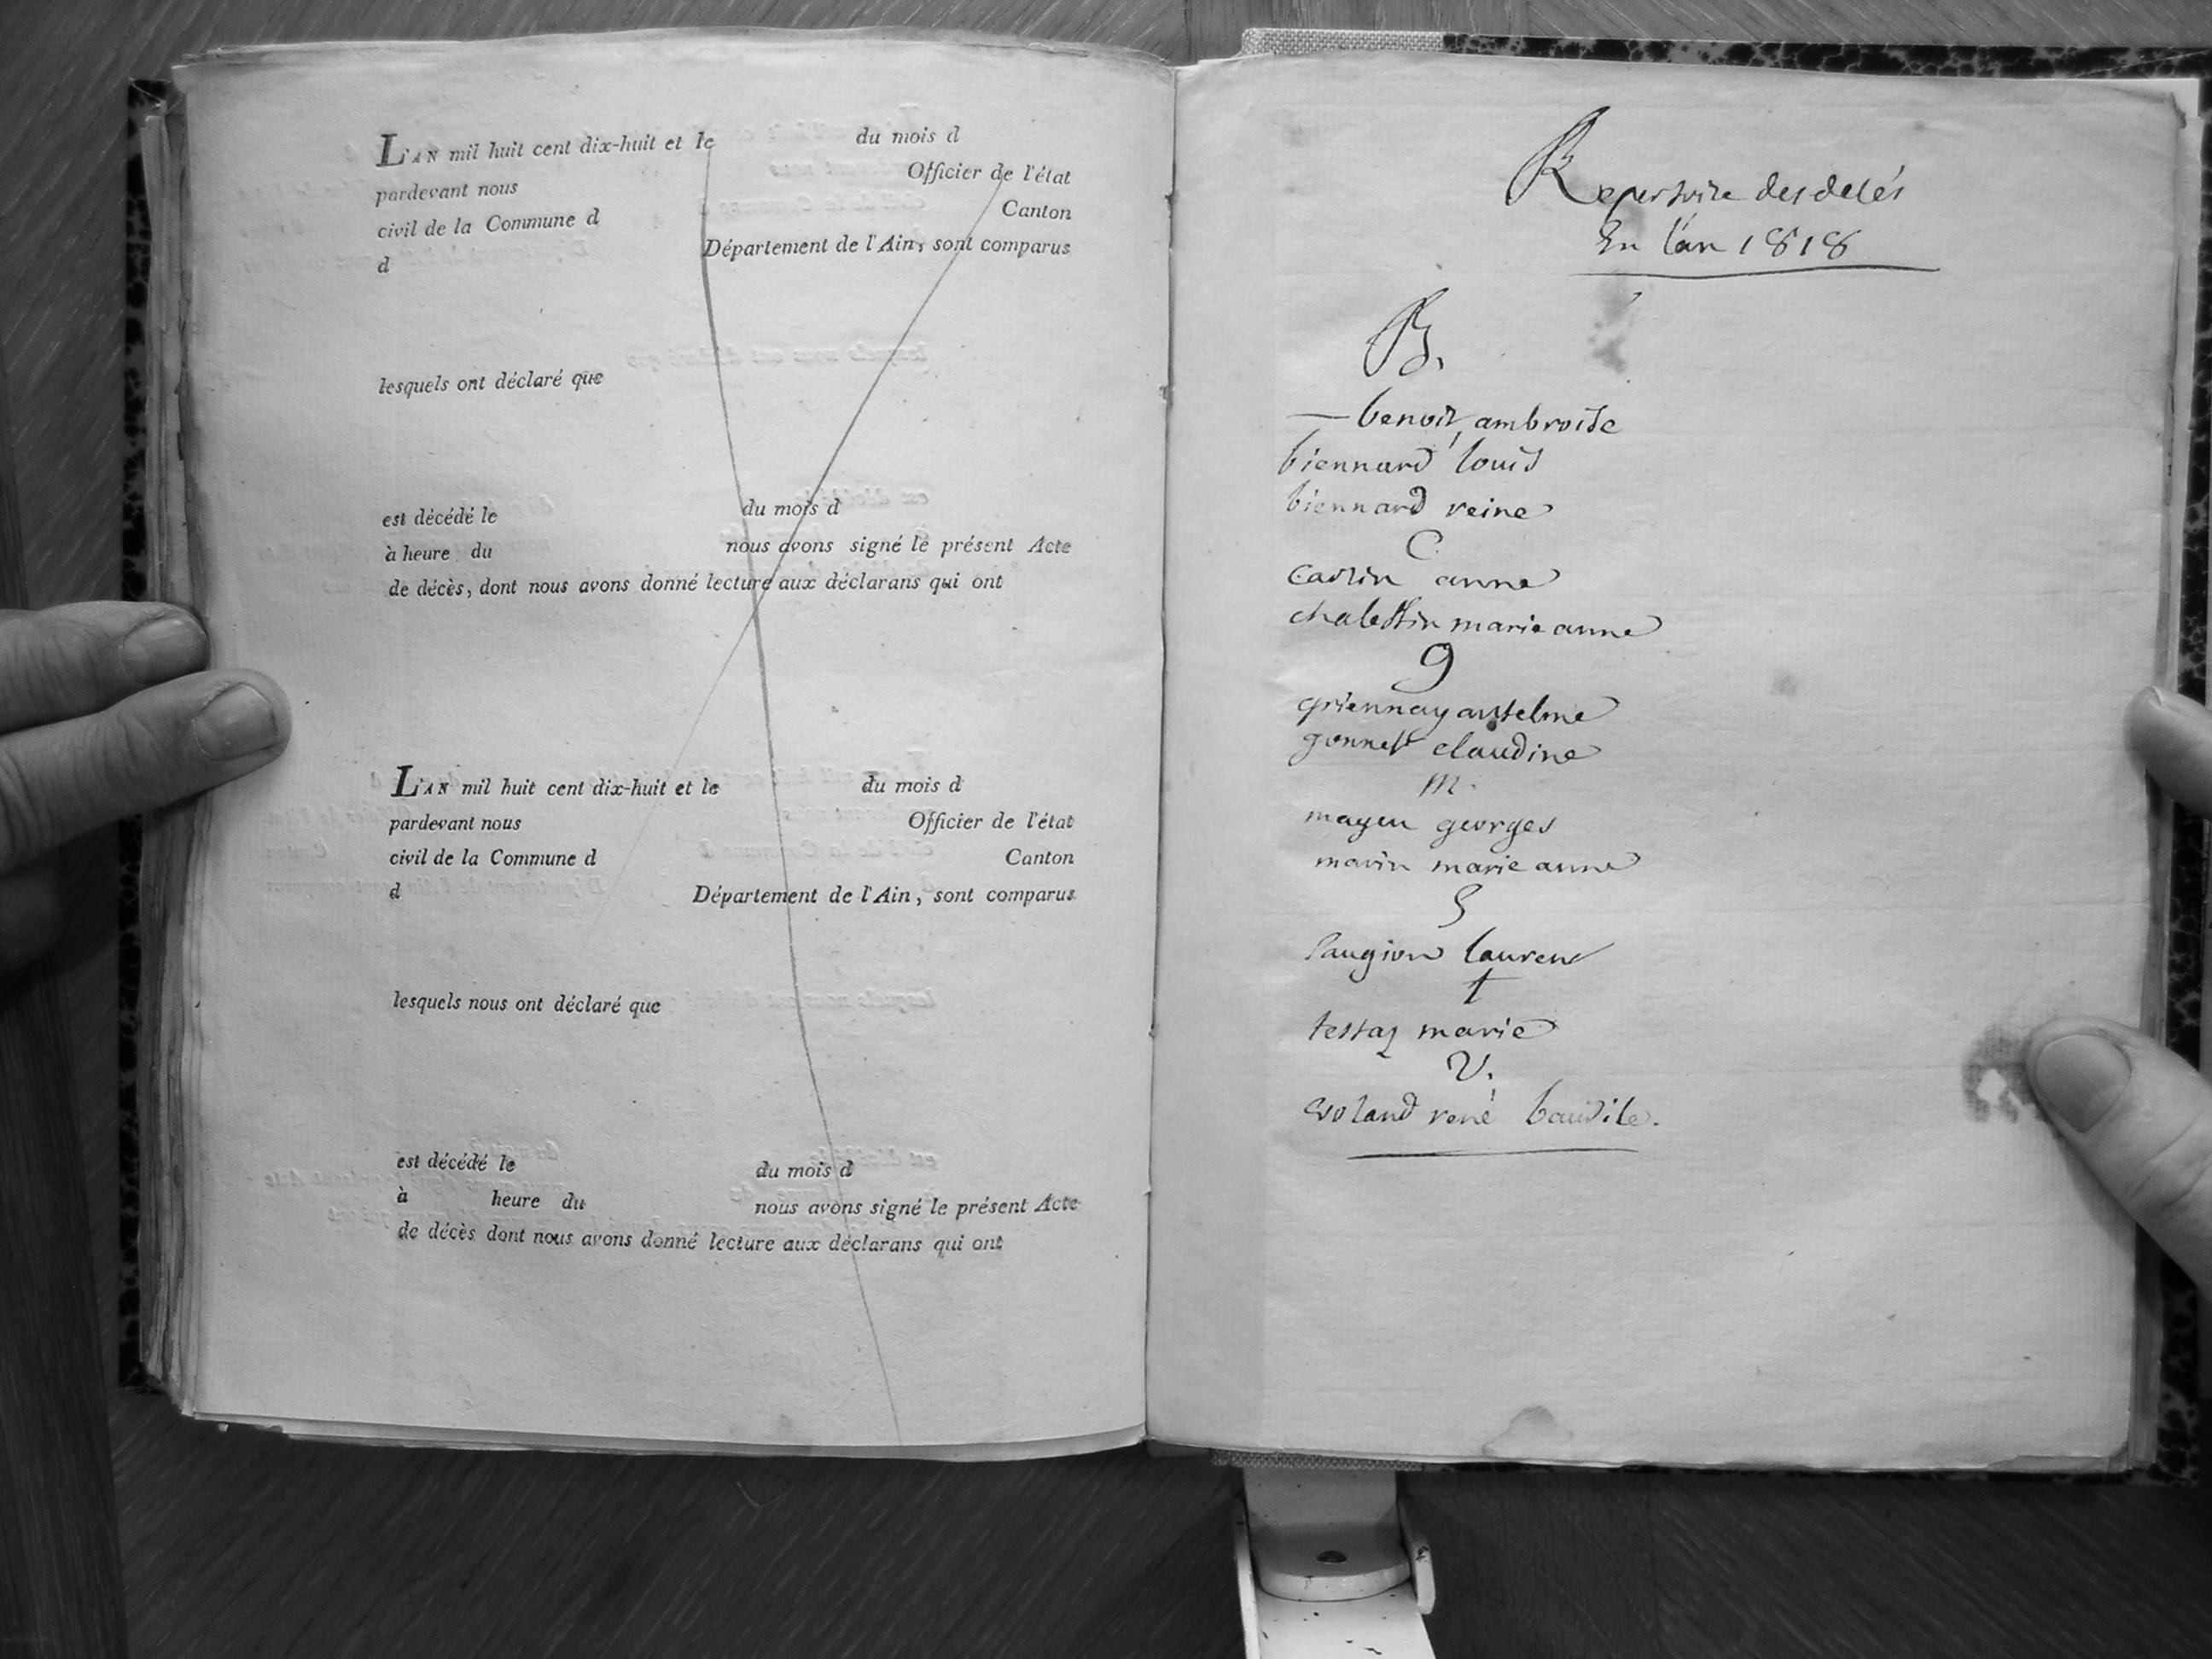 L'AN mil huit cent dix-huit et le du mois d
pardevant nous Officier de l'état
civil de la Commune d Canton
d Département de l'Ain, sont comparus
lesquels ont déclaré que
est décédé le du mois d
à heure du nous avons signé le présent Acte
de décès, dont nous avons donné lecture aux déclarans qui ont
L'AN mil huit cent dix-huit et le du mois d
pardevant nous Officier de l'état
civil de la Commune d Canton
d Département de l'Ain, sont comparus
lesquels nous ont déclaré que
est décédé le du mois d
à heure du nous avons signé le présent Acte
de décès dont nous avons donné lecture aux déclarans qui ont
Repertoire des delés
En l'an 1818
B.
— benoit, ambroise
biennard louis
biennard reine
C.
anne
marie anne
g
anselme
gonnet claudine
m.
georges
marin marie anne
S
Saugion laurens
t
tessaz marie
V.
voland rené baudile.